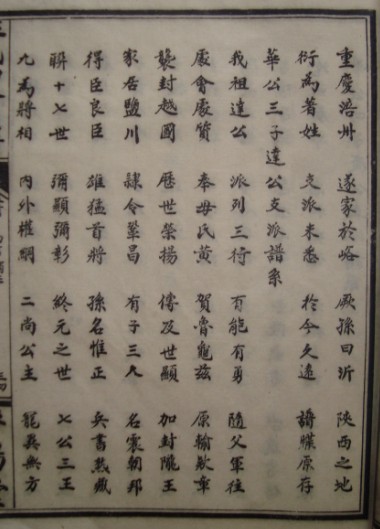 重慶涪州 遂家於峪 厥孫曰沂 陝西之地
衍為著姓 支派未悉 於今久遠 譜牒原存
華公三子達公支派譜系
我祖達公 派列三行 有能有勇 隨父軍往
處會處質 奉母氏黃 賀魯龜茲 原輸欵章
襲封越國 歷世榮揚 儔及世顯 加封隴王
家居鹽川 隸令鞏昌 有子三人 名震朝邦
得臣良臣 雄猛首將 孫名惟正 兵書熟藏
聨十七世 彌顯彌彰 終元之世 七公三王
九為將相 內外權綱 二尚公主 寵異無方